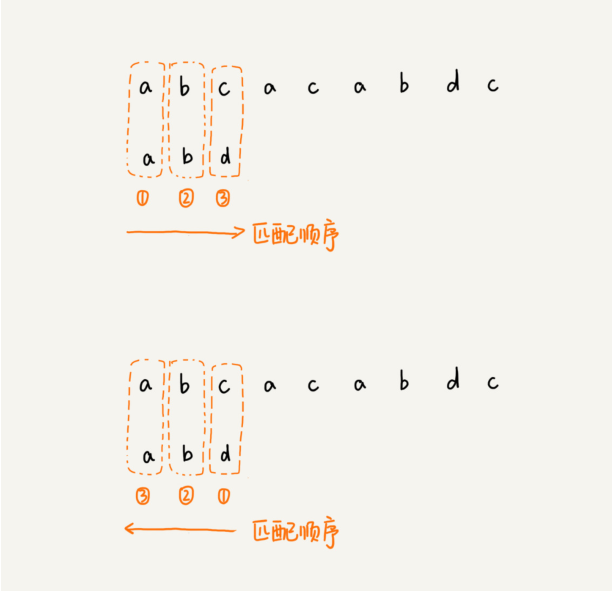 a b c a c a b d c
a b d
① ② ③
匹配顺序
a b c a c a b d c
a b d
③ ② ①
匹配顺序